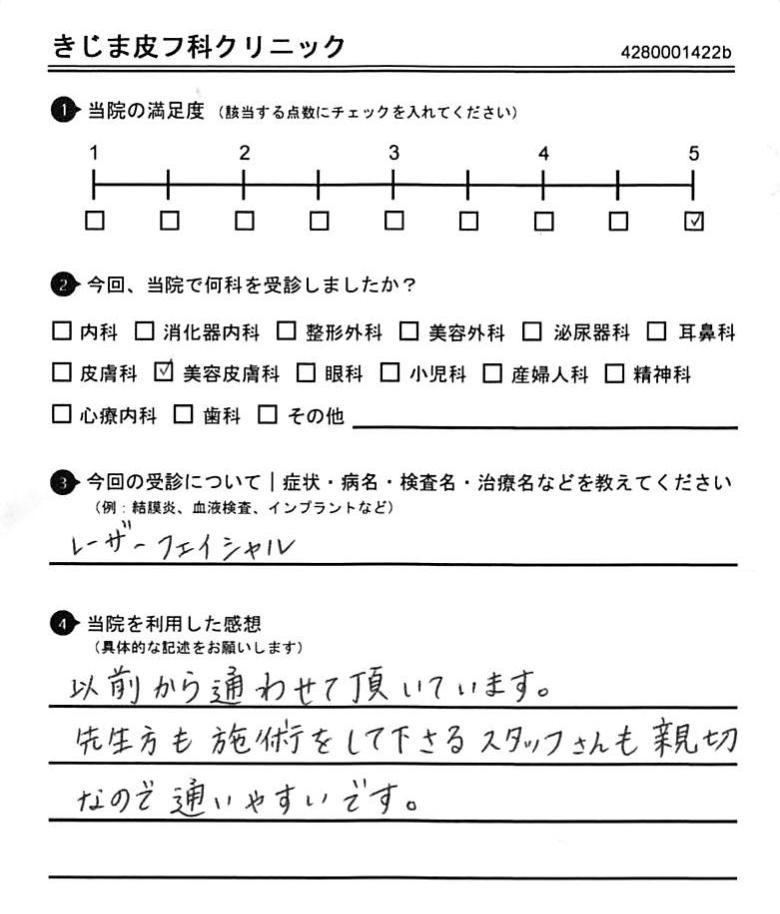 きじま皮フ科クリニック 4280001422b
1 当院の満足度 (該当する点数にチェックを入れてください)
1 2 3 4 5
☐ ☐ ☐ ☐ ☐ ☐ ☐ ☐ ☑
2 今回、当院で何科を受診しましたか?
☐ 内科 ☐ 消化器内科 ☐ 整形外科 ☐ 美容外科 ☐ 泌尿器科 ☐ 耳鼻科
☐ 皮膚科 ☑ 美容皮膚科 ☐ 眼科 ☐ 小児科 ☐ 産婦人科 ☐ 精神科
☐ 心療内科 ☐ 歯科 ☐ その他
3 今回の受診について|症状・病名・検査名・治療名などを教えてください
(例:結膜炎、血液検査、インプラントなど)
レーザーフェイシャル
4 当院を利用した感想
(具体的な記述をお願いします)
以前から通わせて頂いています。
先生方も施術をして下さるスタッフさんも親切
なので通いやすいです。